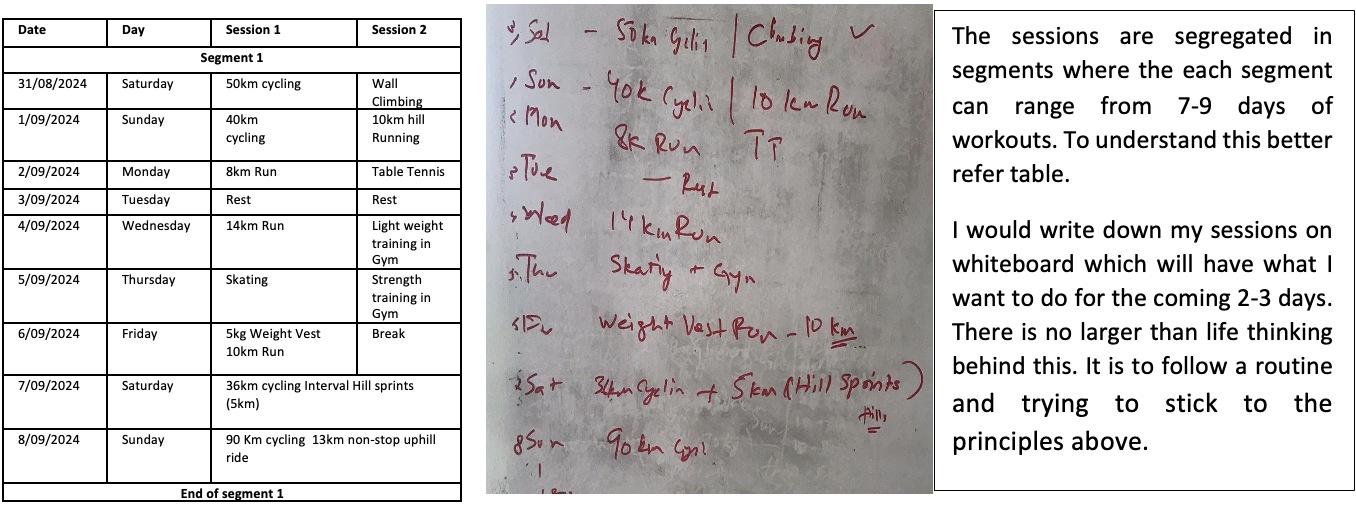 Date Day Session 1 Session 2
Segment 1
31/08/2024 Saturday 50km cycling Wall
Climbing
1/09/2024 Sunday 40km 10km hill
cycling Running
2/09/2024 Monday 8km Run Table Tennis
3/09/2024 Tuesday Rest Rest
4/09/2024 Wednesday 14km Run Light weight
training in
Gym
5/09/2024 Thursday Skating Strength
training in
Gym
6/09/2024 Friday 5kg Weight Vest Break
10km Run
7/09/2024 Saturday 36km cycling Interval Hill sprints
(5km)
8/09/2024 Sunday 90 Km cycling 13km non-stop uphill
ride
End of segment 1
Sat - 50km | Climbing ✓
Sun - 40k | 10 km Run
Mon 8k Run TT
Tue — Rest
Wed 14km Run
Thu + Gym
Weight Vest Run - 10 km
Sat + 5km (Hill Sprints)
Hills
8 Sun 90km
The sessions are segregated in
segments where the each segment
can range from 7-9 days of
workouts. To understand this better
refer table.
I would write down my sessions on
whiteboard which will have what I
want to do for the coming 2-3 days.
There is no larger than life thinking
behind this. It is to follow a routine
and trying to stick to the
principles above.